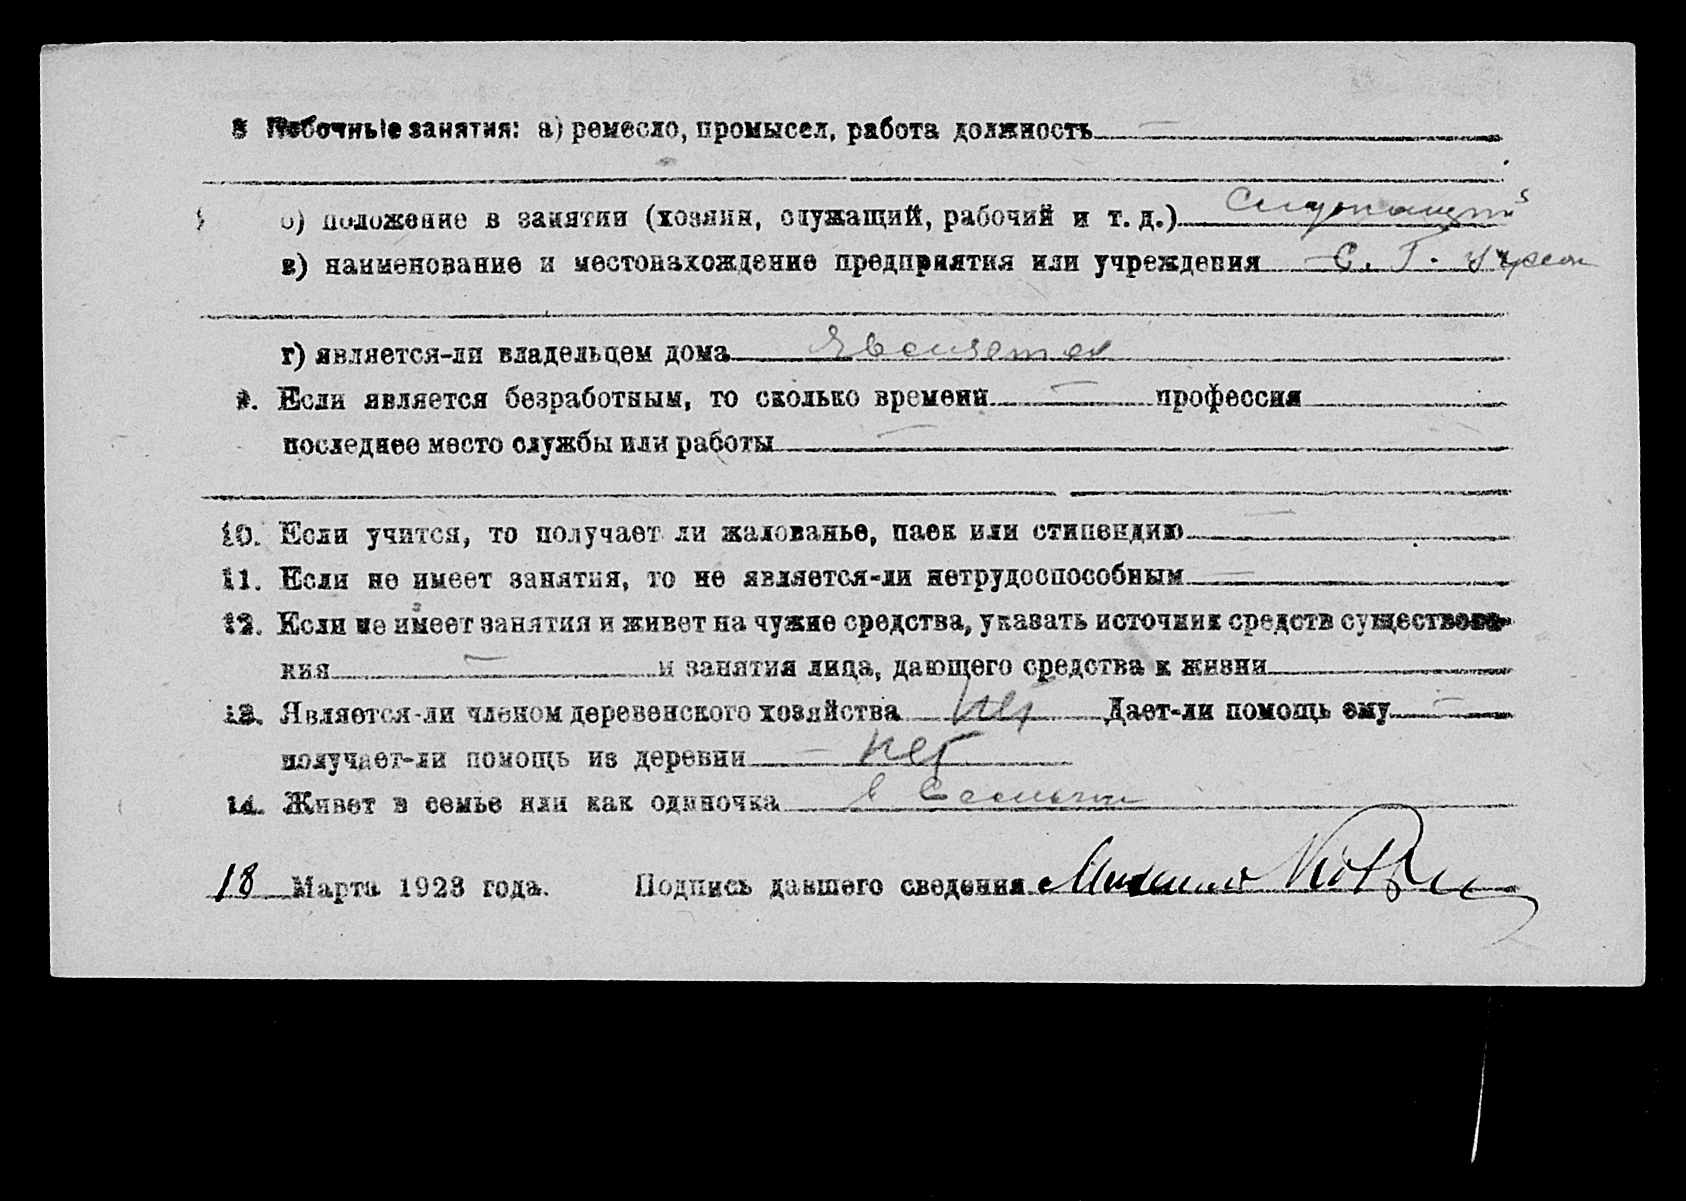 8 Побочные занятия: а) ремесло, промысел, работа должность —
б) положение в занятии (хозяин, служащий, рабочий и т. д.) Служащий
в) наименование и местонахождение предприятия или учреждения С. Г.
г) является-ли владельцем дома Является
9. Если является безработным, то сколько времени — профессия
последнее место службы или работы —
10. Если учится, то получает ли жалованье, паек или стипендию —
11. Если не имеет занятия, то не является-ли нетрудоспособным —
12. Если не имеет занятия и живет на чужие средства, указать источник средств существова-
ния — и занятия лица, дающего средства к жизни
13. Является-ли членом деревенского хозяйства Нет Дает-ли помощь ему —
получает-ли помощь из деревни — нет
14. Живет в семье или как одиночка в Семье
18 Марта 1923 года. Подпись давшего сведения